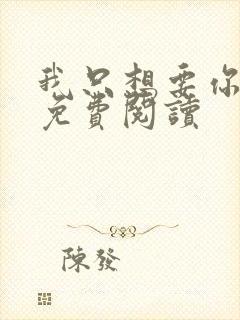 我只想要你
免費閱讀
陳發